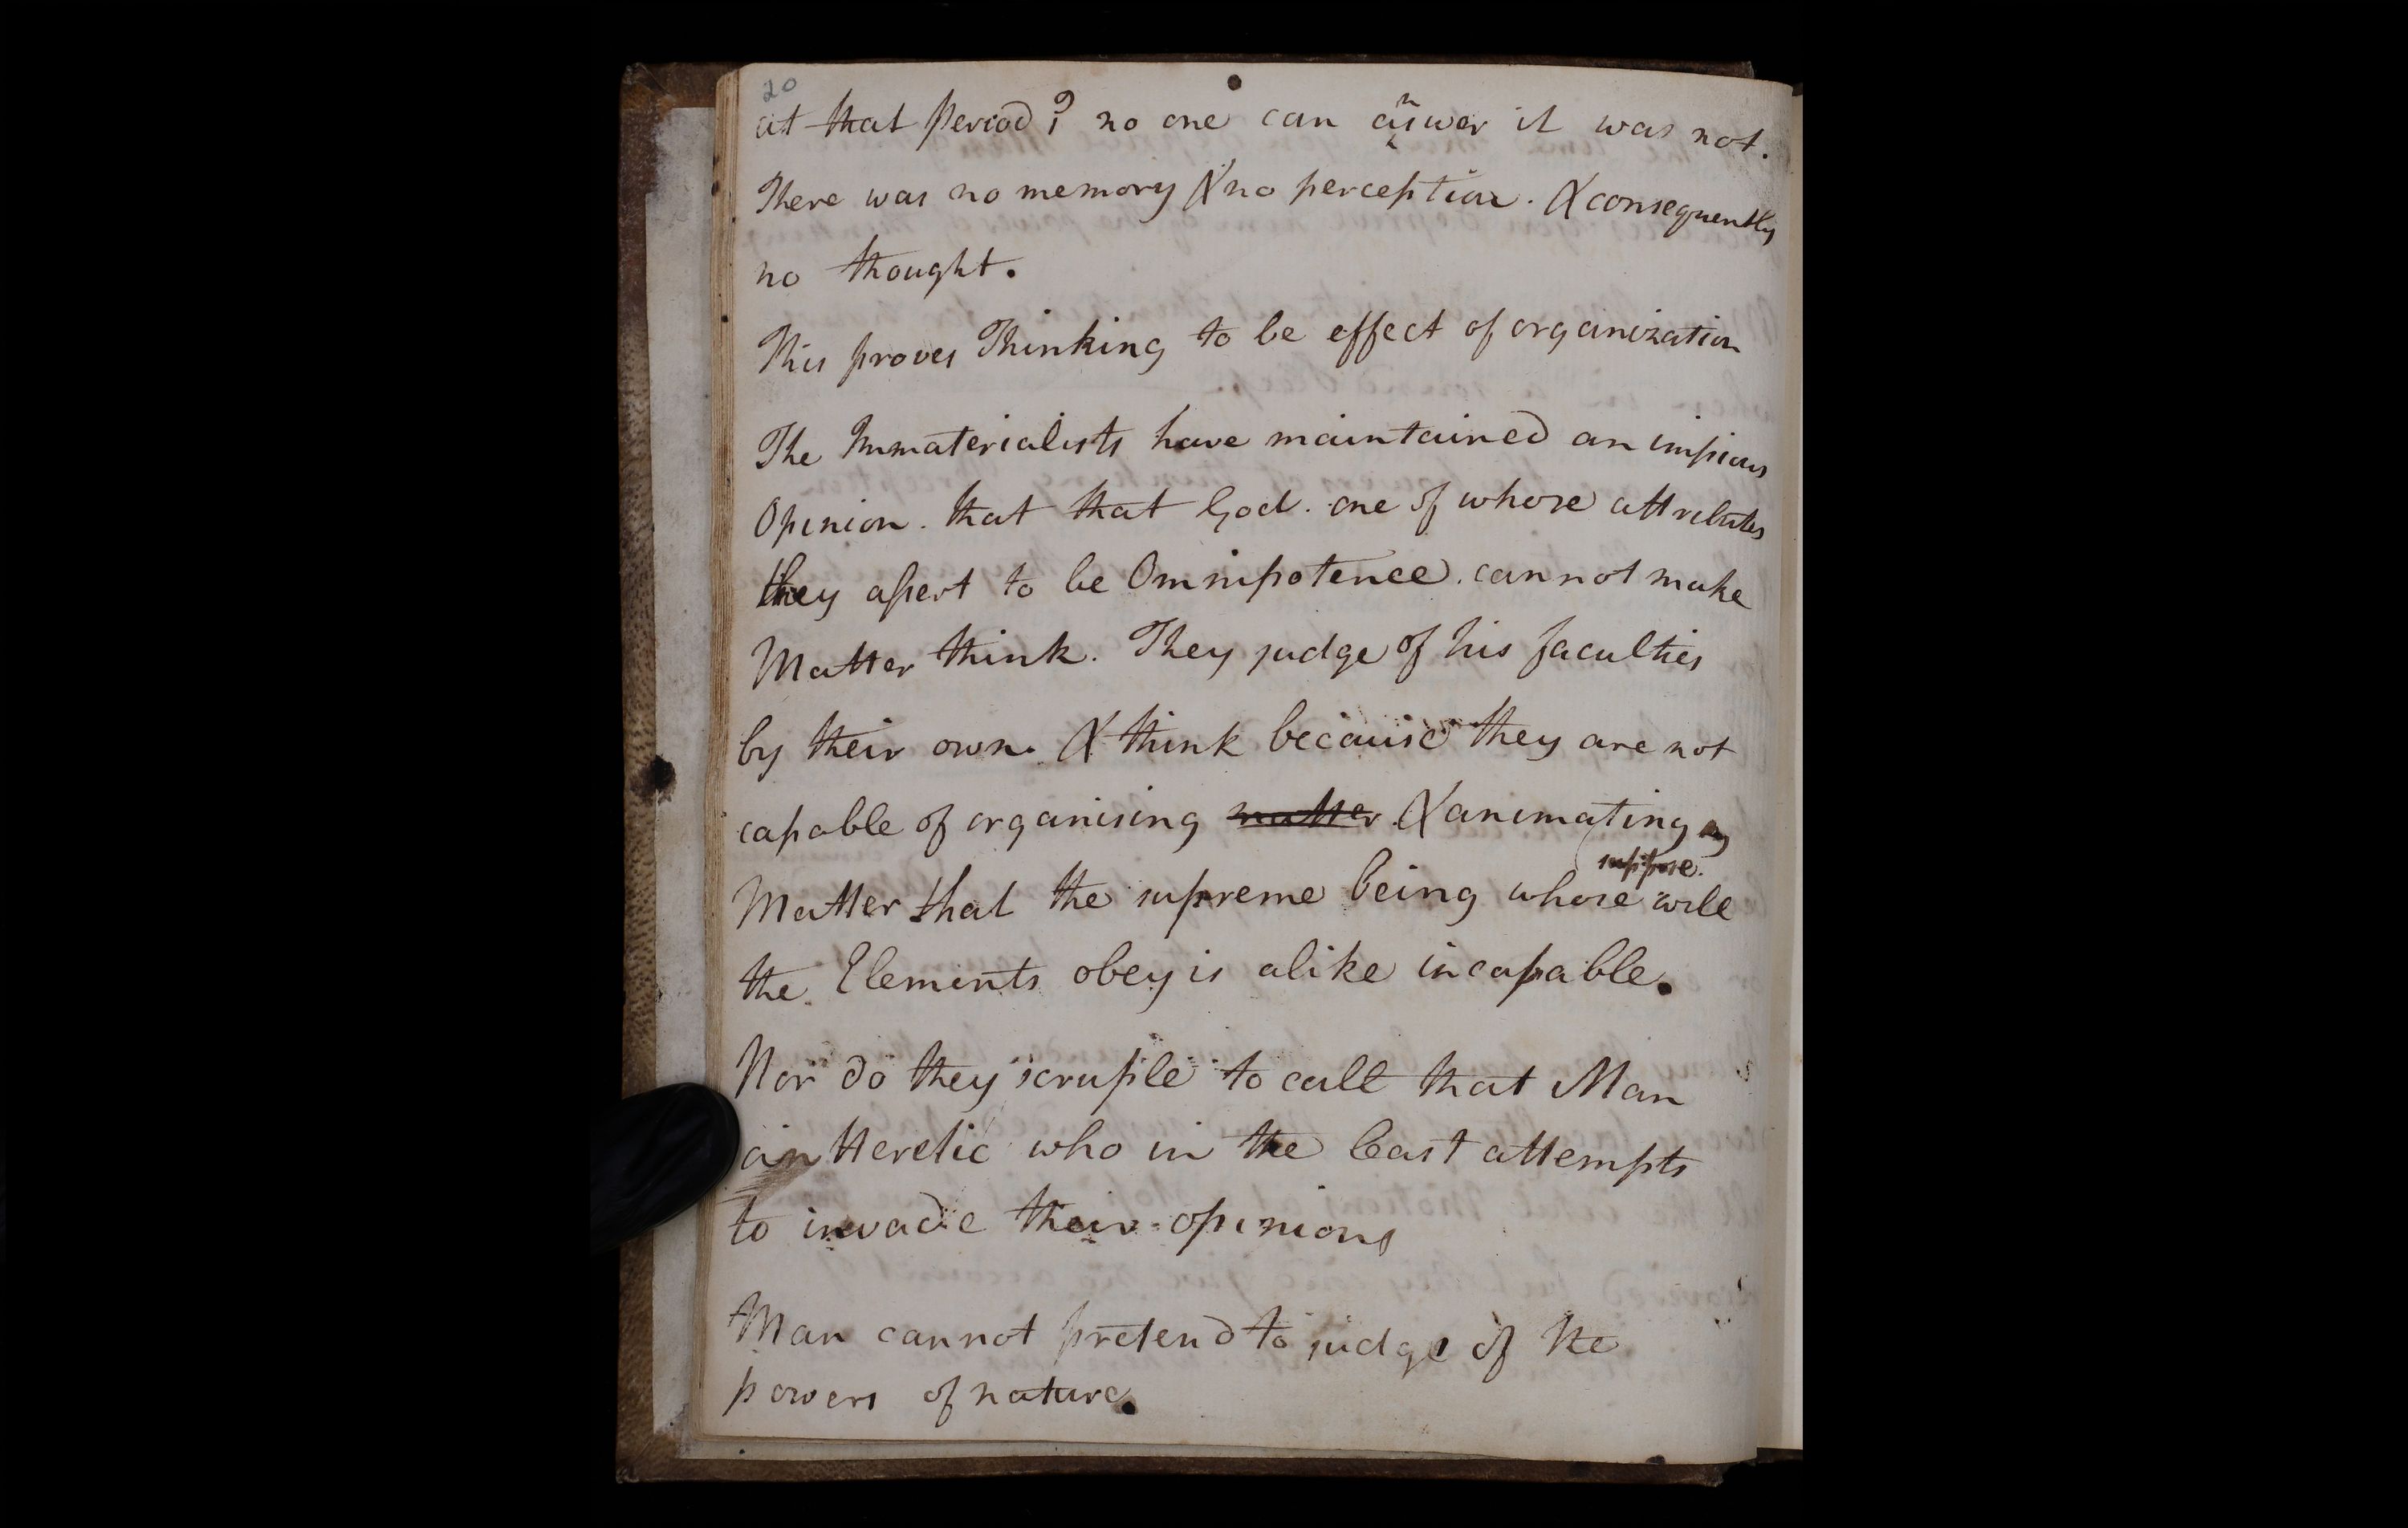 20
at that Period? no one can answer it was not.
There was no memory & no perception. & consequently
no thought.
This proves Thinking to be effect of organization
The Immaterialists have maintained an impious
Opinion. that that God. one of whose attributes
they assert to be Omnipotence. cannot make
Matter think. They judge of his faculties
by their own. & think because they are not
capable of organising matter & animating
suppose.
Matter that the supreme being whose will
the Elements obey is alike incapable.
Nor do they scruple to call that Man
an Heretic who in the least attempts
to invade their opinions
Man cannot pretend to judge of the
powers of nature.